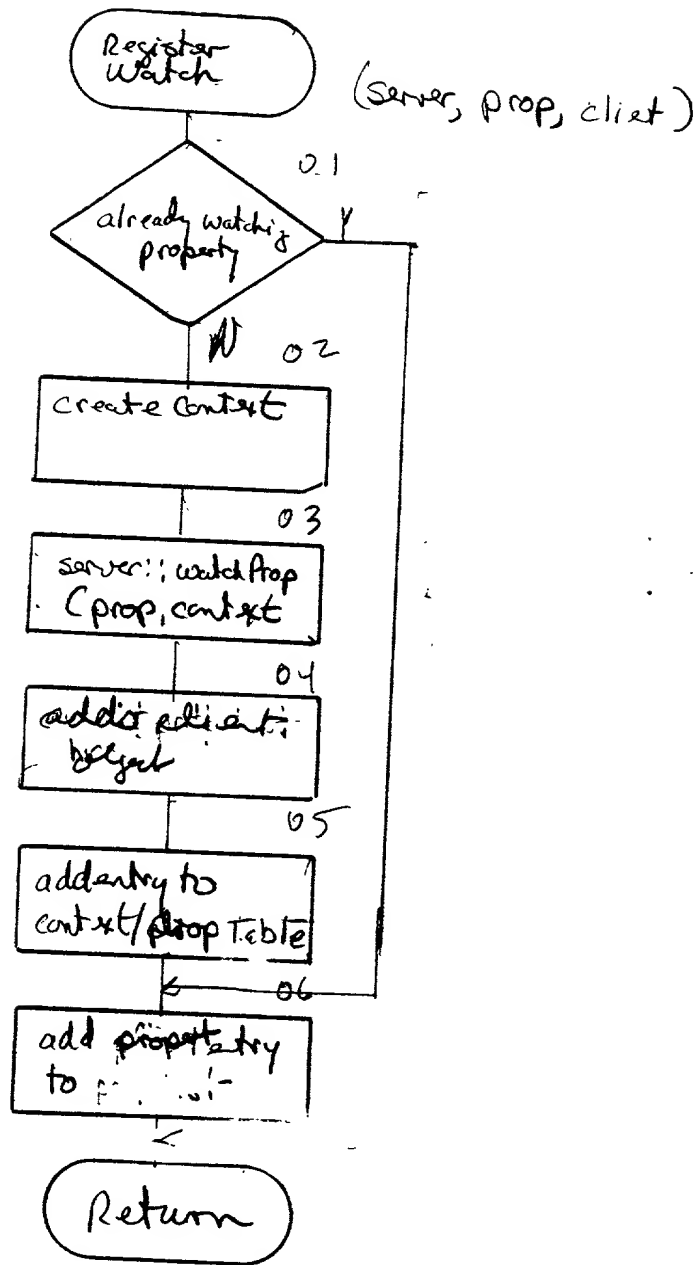 Register
Watch
(server, prop, cliet)
01
already watching
property
Y
N
02
create Context
03
server::watchProp
(prop, context
04
05
add entry to
context/prop Table
06
add entry
to
Return